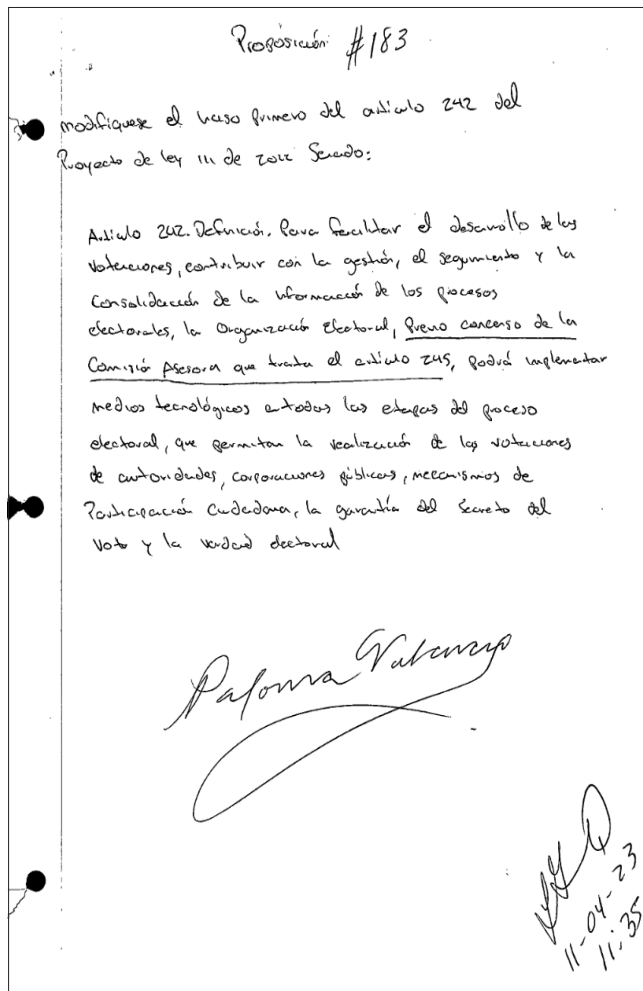 Proposición #183
modifíquese el inciso primero del artículo 242 del
Proyecto de ley 111 de 2022 Senado:
Artículo 242. Definición. Para facilitar el desarrollo de las
votaciones, contribuir con la gestión, el seguimiento y la
consolidación de la información de los procesos
electorales, la Organización Electoral, previo concenso de la
Comisión Asesora que trata el artículo 245, podrá implementar
medios tecnológicos en todas las etapas del proceso
electoral, que permitan la realización de las votaciones
de autoridades, corporaciones públicas, mecanismos de
Participación Ciudadana, la garantía del secreto del
voto y la verdad electoral
Paloma Valencia
11-04-23
11:35